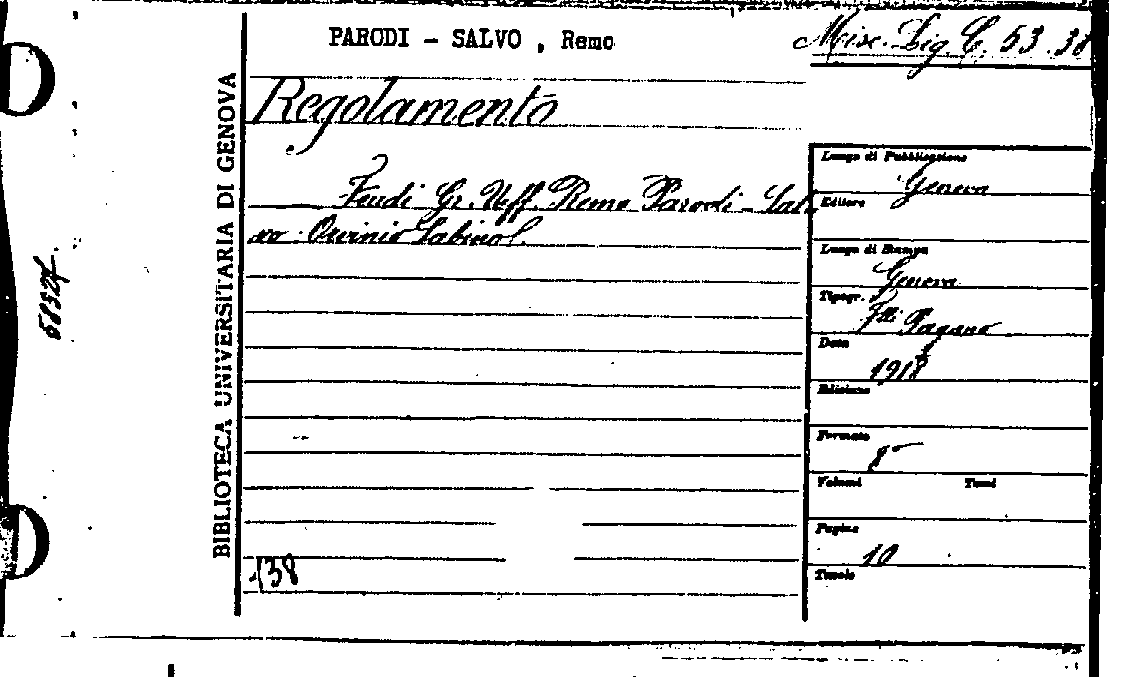 PARODI - SALVO , Remo
Misc. Lig. C. 53. 38
Regolamento
Feudi Gr. Uff. Remo Parodi - Sal-
vo - Orvinio Sabino
BIBLIOTECA UNIVERSITARIA DI GENOVA
Luogo di Pubblicazione
Genova
Editore
Luogo di Stampa
Genova
Tipogr.
F.lli Pagano
Data
1918
Edizione
Formato
8°
Volumi Tomi
Pagine
10
Tavole
138